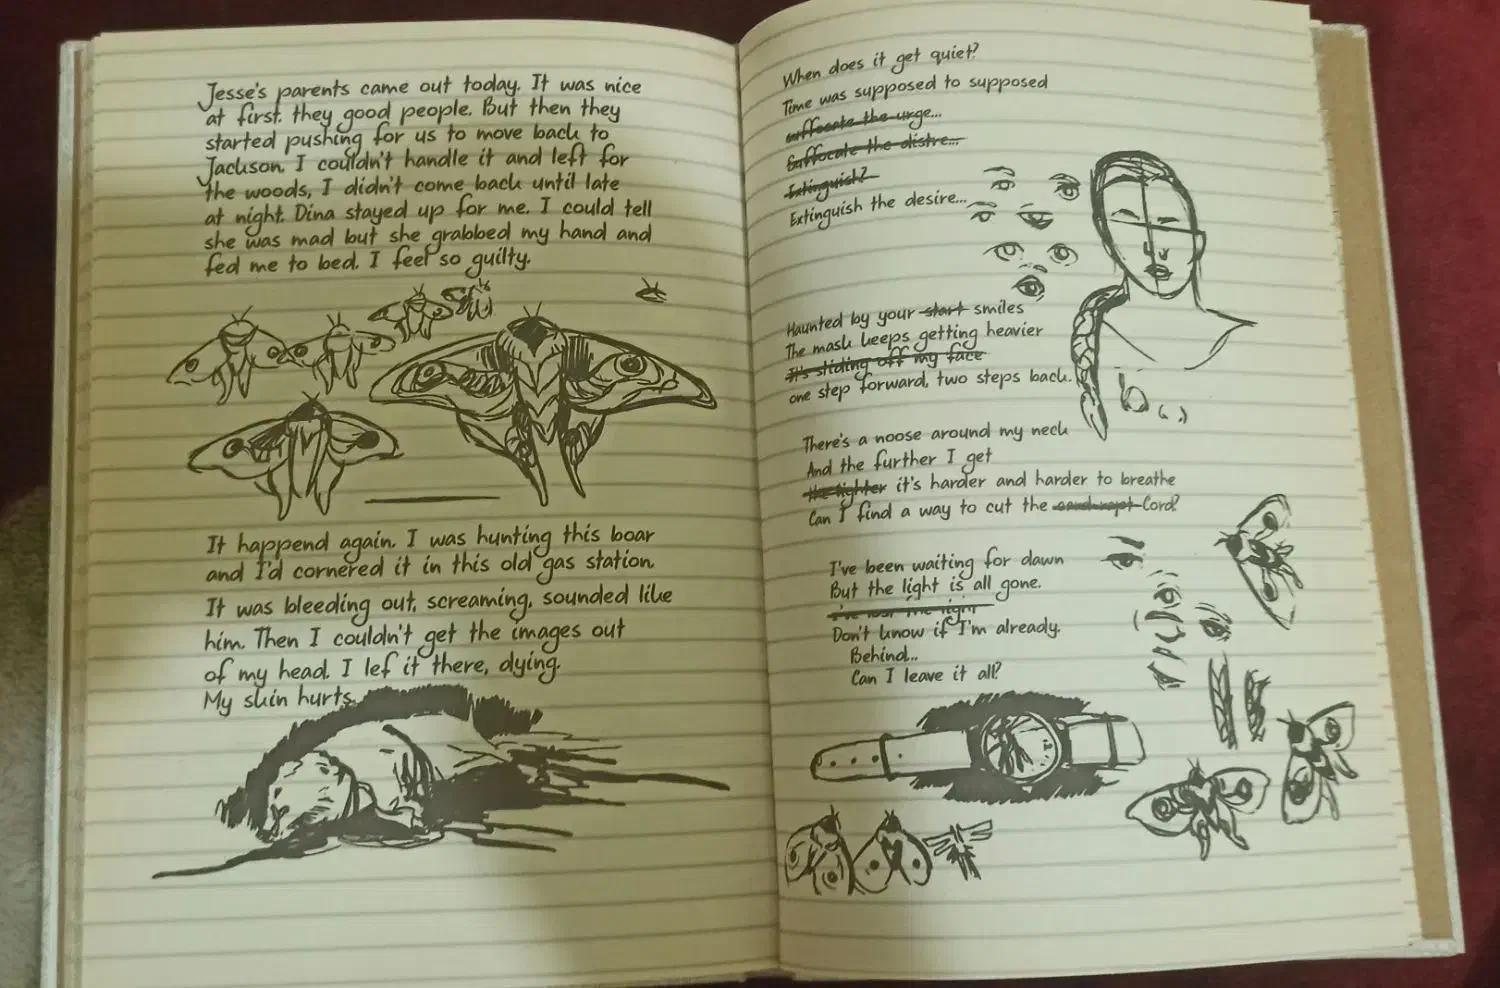 Jesse's parents came out today. It was nice
at first. they good people. But then they
started pushing for us to move back to
Jackson. I couldn't handle it and left for
the woods. I didn't come back until late
at night. Dina stayed up for me. I could tell
she was mad but she grabbed my hand and
led me to bed. I feel so guilty.
It happend again. I was hunting this boar
and I'd cornered it in this old gas station.
It was bleeding out, screaming, sounded like
him. Then I couldn't get the images out
of my head. I lef it there, dying.
My skin hurts.
When does it get quiet?
Time was supposed to supposed
suffocate the urge...
Suffocate the distre...
Extinguish?
Extinguish the desire...
Haunted by your start smiles
The mask keeps getting heavier
It's sliding off my face
one step forward, two steps back.
There's a noose around my neck
And the further I get
the tighter it's harder and harder to breathe
Can I find a way to cut the Cord?
I've been waiting for dawn
But the light is all gone.
I've lost the light
Don't know if I'm already.
Behind...
Can I leave it all?